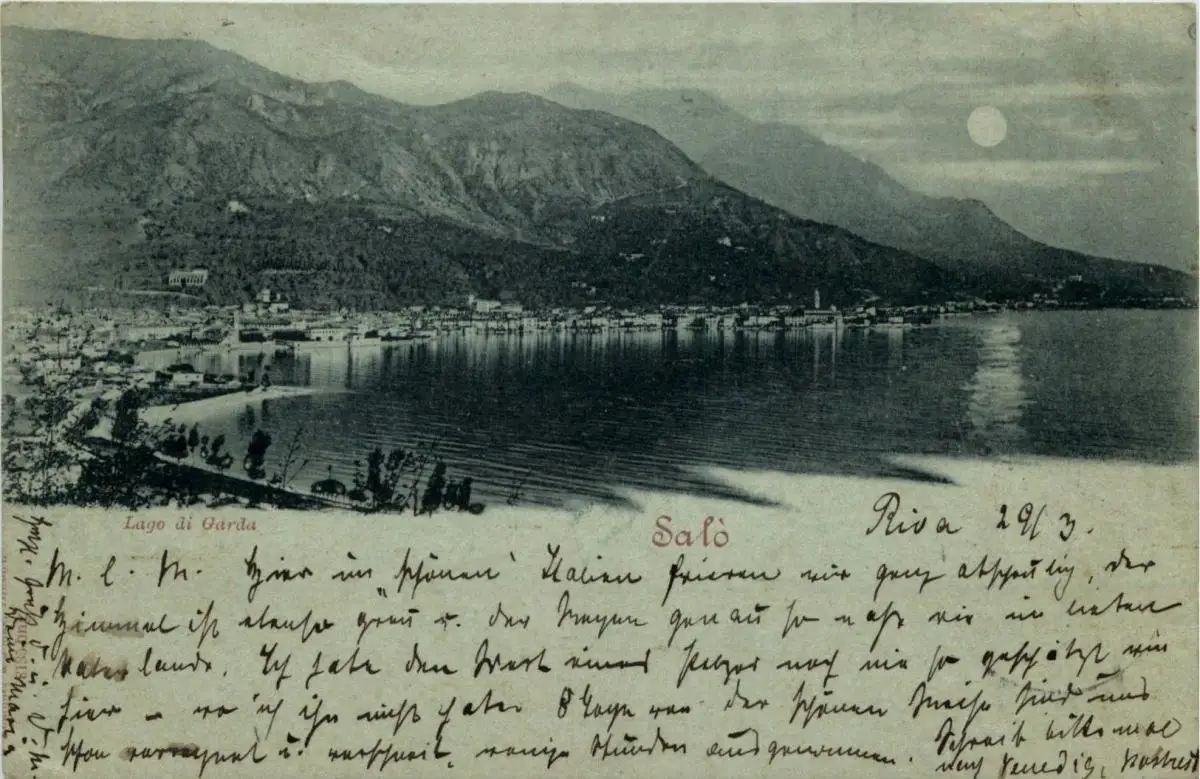 Lago di Garda
Salò
Riva 29/3.
M. l. M. Hier im "schönen" Italien frieren wir ganz abscheulich, der
Himmel ist ebenso grau u. der Regen genau so naß wie im lieben
Vaterlande. Ich habe den Wert eines Pelzes noch nie so geschätzt wie
hier – wo ich ihn nicht habe. 8 Tage von der schönen Reise sind uns
schon verregnet u. verschneit, wenige Stunden ausgenommen. Schreib bitte mal
nach Venedig,